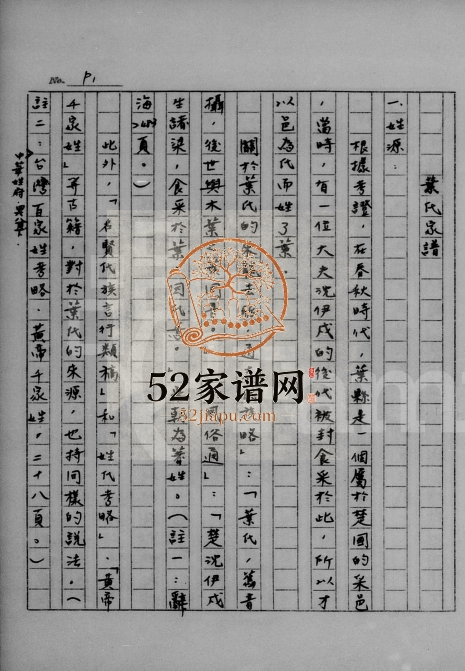 No. P1
葉氏家譜
一、姓源：
根據考證，在春秋時代，葉縣是一個屬於楚國的采邑
，當時，有一位大夫沈伊戌的後代被封食采於此，所以才
以邑為氏而姓了葉．
關於葉氏的來龍去脈，通志氏族略」：「葉氏，舊音
攝，後世與木葉之葉同音。風俗通」：「楚沈伊戌
生諸梁，食采於葉，因氏焉。」為著姓。（註一：辭
海 頁。）
此外，「名賢氏族言行類稿」和「姓氏考略」、「黃帝
千家姓」等古籍，對於葉氏的來源，也持同樣的說法。（
註二：台灣百家姓考略．黃帝千家姓，二十八頁。）
中華姓府
52家谱网
52jiapu.com